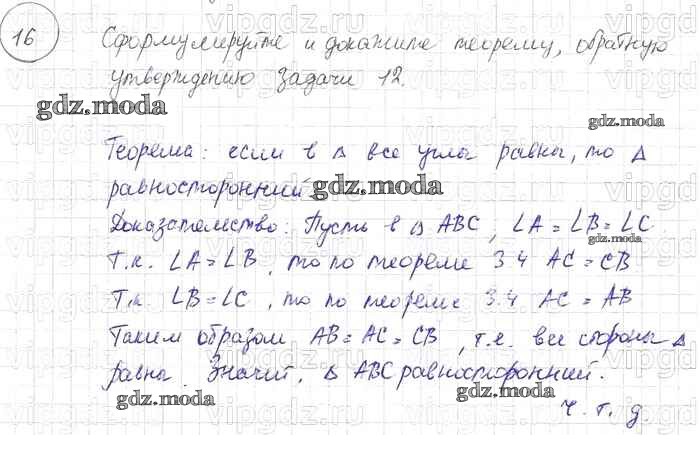 16 Сформулируйте и докажите теорему, обратную
утверждению задачи 12.
gdz.moda
gdz.moda
Теорема: если в △ все углы равны, то △
равносторонний. gdz.moda
Доказательство: Пусть в △ ABC, ∠A = ∠B = ∠C
gdz.moda
Т.к. ∠A = ∠B, то по теореме 3.4 AC = CB
Т.к. ∠B = ∠C, то по теореме 3.4 AC = AB
Таким образом AB = AC = CB, т.е. все стороны △
равны. Значит, △ ABC равносторонний.
gdz.moda gdz.moda
ч.т.д.